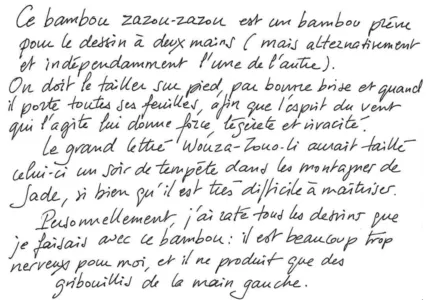 Ce bambou zazou-zazou est un bambou prévu
pour le dessin à deux mains (mais alternativement
et indépendamment l'une de l'autre).
On doit le tailler sur pied, par bonne brise et quand
il porte toutes ses feuilles, afin que l'esprit du vent
qui l'agite lui donne force, légèreté et vivacité.
Le grand lettré Wouza-Zouo-li aurait taillé
celui-ci un soir de tempête dans les montagnes de
Jade, si bien qu'il est très difficile à maîtriser.
Personnellement, j'ai raté tous les dessins que
je faisais avec ce bambou : il est beaucoup trop
nerveux pour moi, et il ne produit que des
gribouillis de la main gauche.